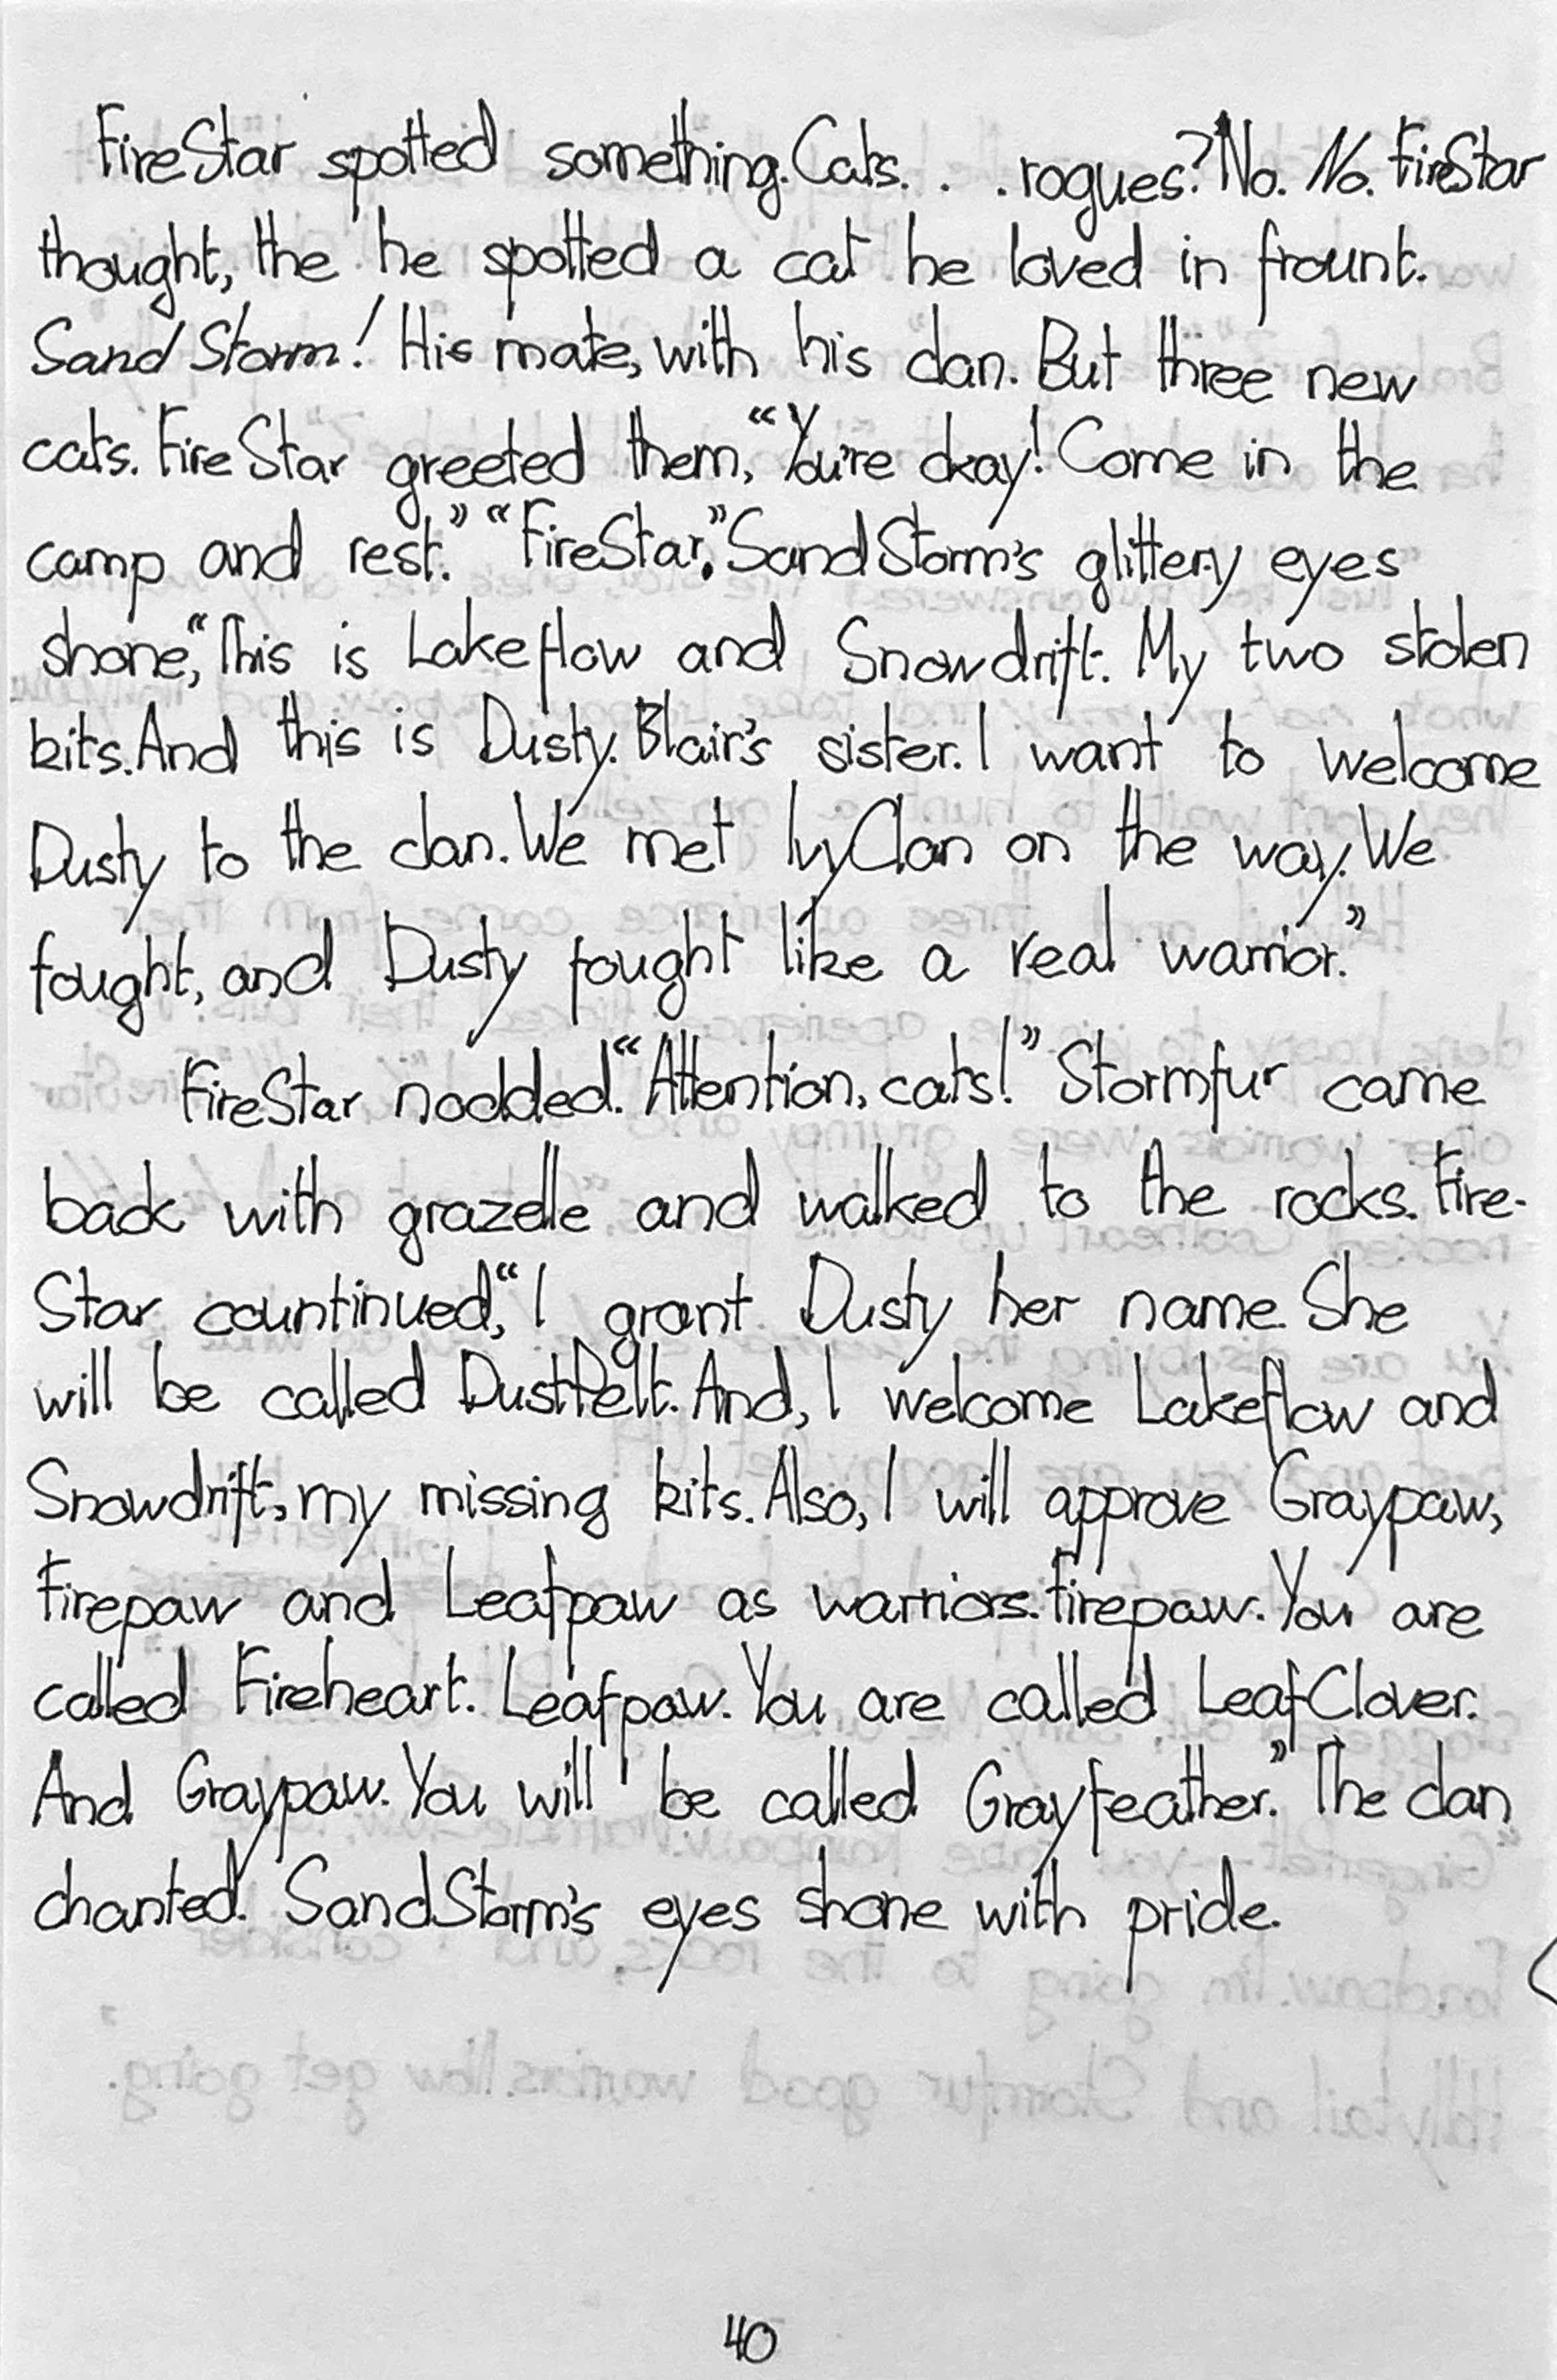 FireStar spotted something. Cats. . . rogues? No. No. FireStar
thought, the he spotted a cat he loved in frount.
SandStorm! His mate, with his clan. But three new
cats. FireStar greeted them, “You're okay! Come in the
camp and rest.” “FireStar,” SandStorm's glittery eyes
shone, “This is Lakeflow and Snowdrift. My two stolen
kits. And this is Dusty. Blair's sister. I want to welcome
Dusty to the clan. We met IvyClan on the way. We
fought, and Dusty fought like a real warrior.”
FireStar nodded. “Attention, cats!” Stormfur came
back with grazelle and walked to the rocks. Fire-
Star countinued, “I grant Dusty her name. She
will be called DustPelt. And, I welcome Lakeflow and
Snowdrift, my missing kits. Also, I will approve Graypaw,
Firepaw and Leafpaw as warriors. Firepaw. You are
called Fireheart. Leafpaw. You are called LeafClover.
And Graypaw. You will be called Grayfeather.” The clan
chanted. SandStorm's eyes shone with pride.
40